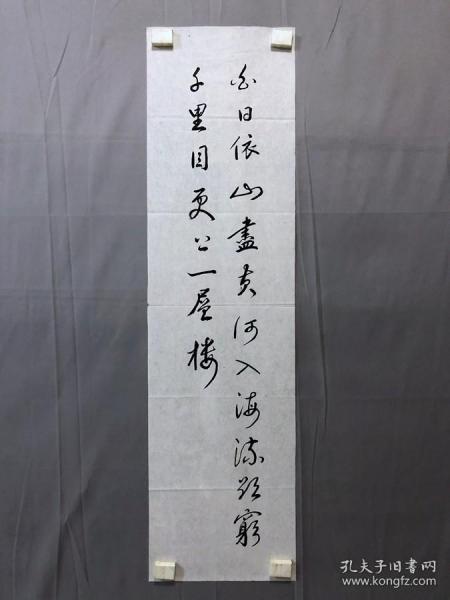 白日依山盡黄河入海流欲窮
千里目更上一層樓
孔夫子旧书网
www.kongfz.com